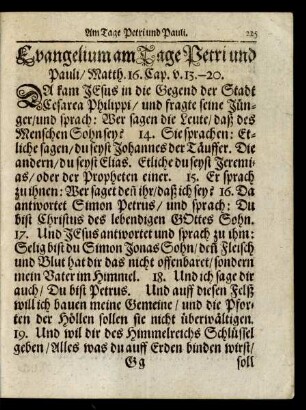 Am Tage Petri und Pauli. 225
Evangelium am Tage Petri und
Pauli/ Matth. 16. Cap. v. 13.–20.
DA kam JEsus in die Gegend der Stadt
Cesarea Philippi/ und fragte seine Jün-
ger/und sprach: Wer sagen die Leute/daß des
Menschen Sohn sey? 14. Sie sprachen: Et-
liche sagen/ du seyst Johannes der Täuffer. Die
andern/du seyst Elias. Etliche du seyst Jeremi-
as/oder der Propheten einer. 15. Er sprach
zu ihnen: Wer saget deñ ihr/daß ich sey? 16. Da
antwortet Simon Petrus/ und sprach: Du
bist Christus des lebendigen GOttes Sohn.
17. Und JEsus antwortet und sprach zu ihm:
Selig bist du Simon Jonas Sohn/ deñ Fleisch
und Blut hat dir das nicht offenbaret/sondern
mein Vater im Himmel. 18. Und ich sage dir
auch/ Du bist Petrus. Und auff diesen Felß
will ich bauen meine Gemeine/ und die Pfor-
ten der Höllen sollen sie nicht überwältigen.
19. Und wil dir des Himmelreichs Schlüssel
geben/ Alles was du auff Erden binden wirst/
Gg soll